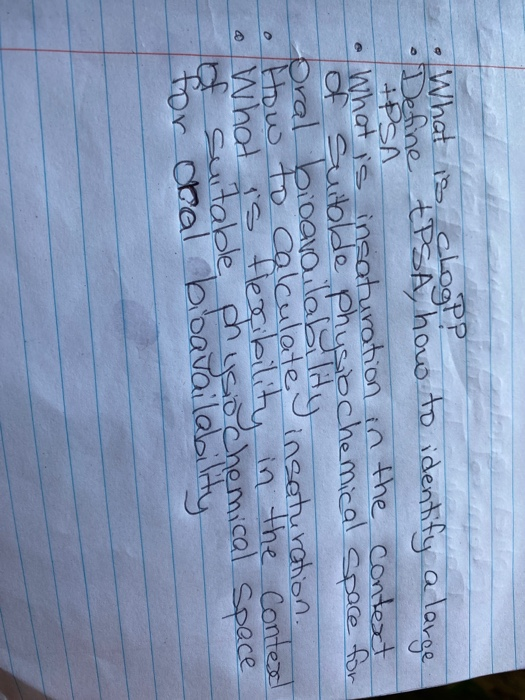 • What is cLogP?
• Define tPSA, how to identify a large
tPSA
• What is insaturation in the context
of suitable physiochemical space for
oral bioavailability
• How to calculate insaturation.
• What is flexibility in the context
of suitable physiochemical space
for oral bioavailability